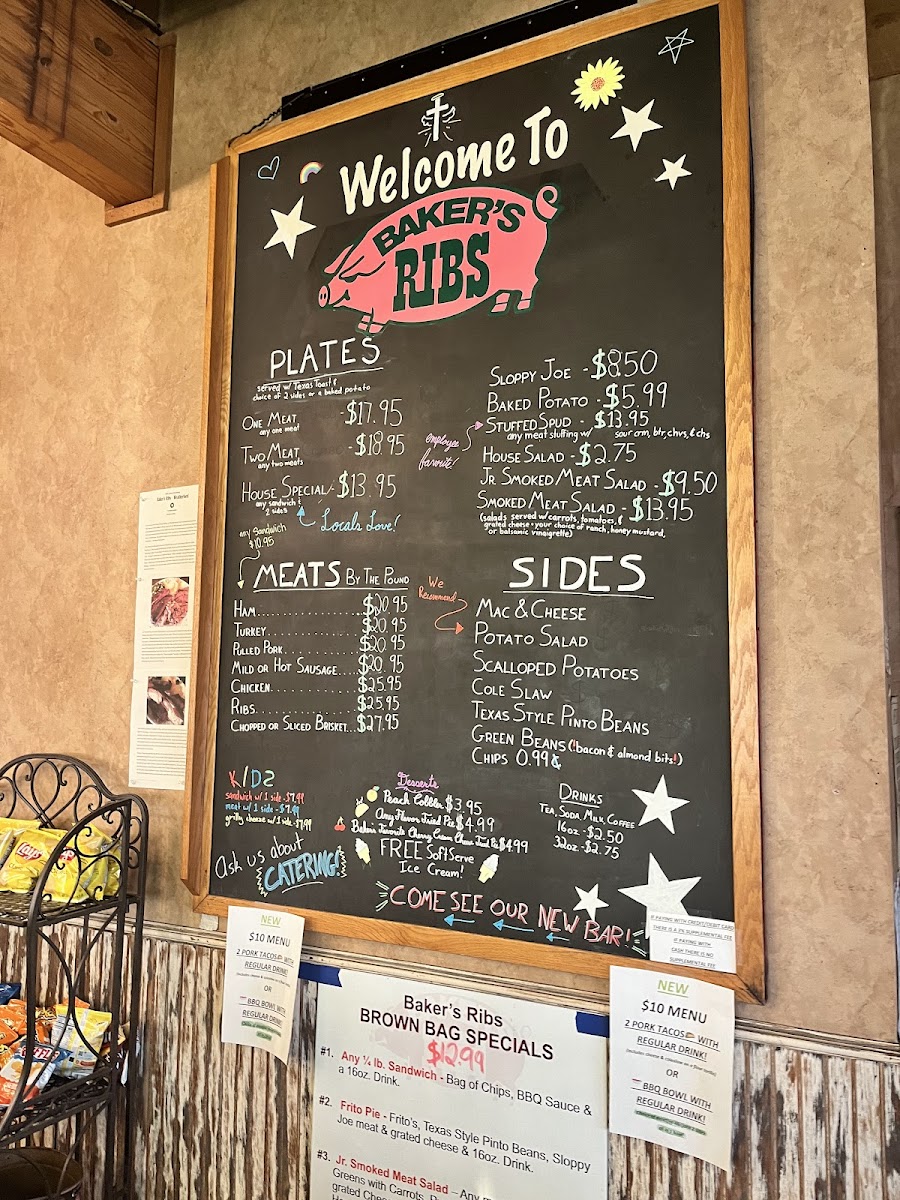 Welcome To
BAKER'S
RIBS
PLATES
served w/ Texas Toast &
choice of 2 sides or a baked potato
ONE MEAT -$17.95
any one meat
TWO MEAT -$18.95
any two meats
HOUSE SPECIAL -$13.95
any sandwich &
2 sides
Locals Love!
any sandwich
$10.95
SLOPPY JOE -$8.50
BAKED POTATO -$5.99
STUFFED SPUD -$13.95
any meat stuffing w/ sour crm, btr, chvs, & chs
employee
favorite!
HOUSE SALAD -$2.75
JR. SMOKED MEAT SALAD -$9.50
SMOKED MEAT SALAD -$13.95
(salads served w/ carrots, tomatoes, &
grated cheese - your choice of ranch, honey mustard,
or balsamic vinaigrette)
MEATS BY THE POUND
HAM $20.95
TURKEY $20.95
PULLED PORK $20.95
MILD OR HOT SAUSAGE $20.95
CHICKEN $25.95
RIBS $25.95
CHOPPED OR SLICED BRISKET $27.95
SIDES
We
Recommend
MAC & CHEESE
POTATO SALAD
SCALLOPED POTATOES
COLE SLAW
TEXAS STYLE PINTO BEANS
GREEN BEANS (!bacon & almond bits!)
CHIPS 0.99¢
KIDS
sandwich w/ 1 side -$7.99
meat w/ 1 side -$7.99
grilly cheese w/ 1 side -$7.99
Ask us about
CATERING!
Desserts
Peach Cobbler $3.95
Any Flavor Fried Pie $4.99
Baker's Favorite Cherry Cream Cheese Fried Pie $4.99
FREE Soft Serve
Ice Cream!
DRINKS
TEA, SODA, MILK, COFFEE
16oz -$2.50
32oz -$2.75
COME SEE OUR NEW BAR!
IF PAYING WITH CREDIT/DEBIT CARD
THERE IS A 3% SUPPLEMENTAL FEE
IF PAYING WITH
CASH THERE IS NO
SUPPLEMENTAL FEE
NEW
$10 MENU
2 PORK TACOS WITH
REGULAR DRINK!
OR
BBQ BOWL WITH
REGULAR DRINK!
Baker's Ribs
BROWN BAG SPECIALS
$12.99
#1. Any ¼ lb. Sandwich - Bag of Chips, BBQ Sauce &
a 16oz. Drink.
#2. Frito Pie - Frito's, Texas Style Pinto Beans, Sloppy
Joe meat & grated cheese & 16oz. Drink.
#3. Jr. Smoked Meat Salad – Any
Greens with Carrots,
grated
NEW
$10 MENU
2 PORK TACOS WITH
REGULAR DRINK!
OR
BBQ BOWL WITH
REGULAR DRINK!
Lay's